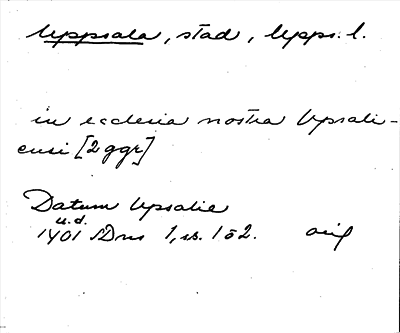 Uppsala, stad, Upps. l.
in ecclesia nostra Upsali-
ensi [2 ggr]
Datum Upsalie
u.d.
1401 SDns 1, s. 152. orig